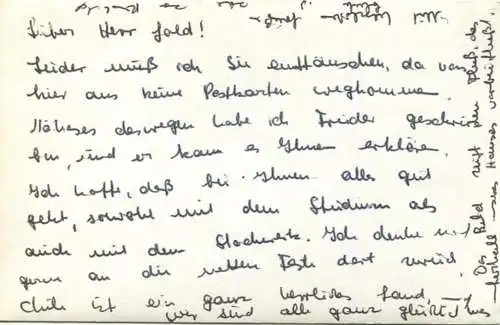 Lieber Herr Gold!
Leider muß ich Sie enttäuschen, da von
hier aus keine Postkarten wegkommen.
Näheres deswegen habe ich Frieder geschrie
ben, und er kann es Ihnen erklären.
Ich hoffe, daß bei Ihnen alles gut
geht, sowohl mit dem Studium als
auch mit dem Stockwerk. Ich denke noch
gerne an die netten Feste dort zurück.
Chile ist ein ganz herrliches Land,
wir sind alle ganz glücklich
Das Bild mit dem Fluß, der
unterhalb des Hauses vorbeifließt.